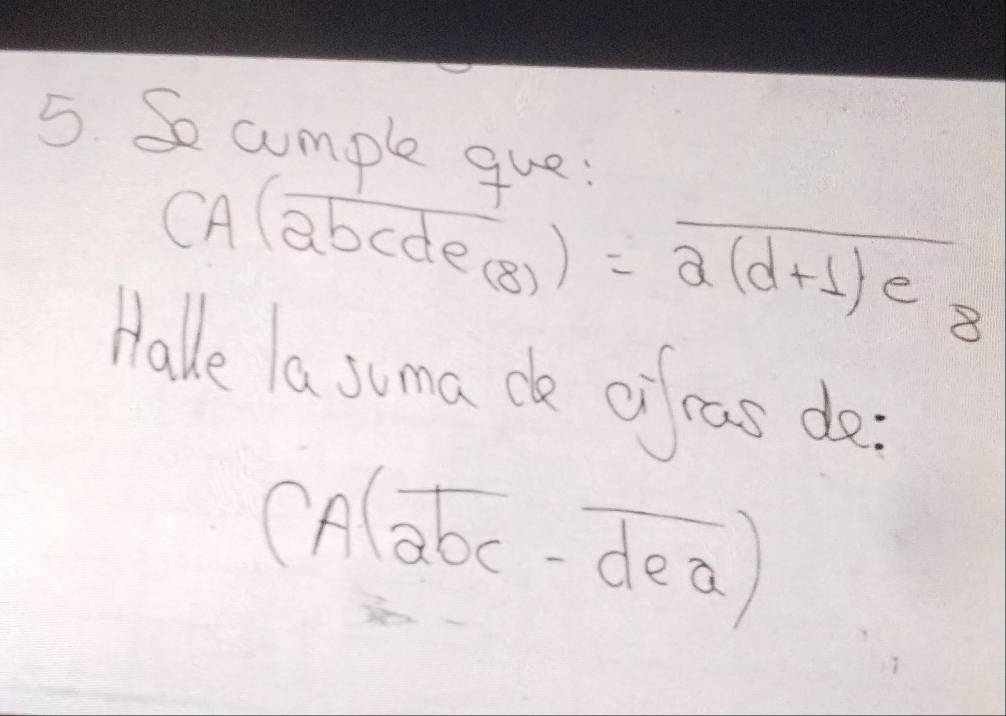 5. Se cumple que:
CA(abcde(8)) = a(d+1)e 8
Halle la suma de cifras de:
CA(abc - dea)